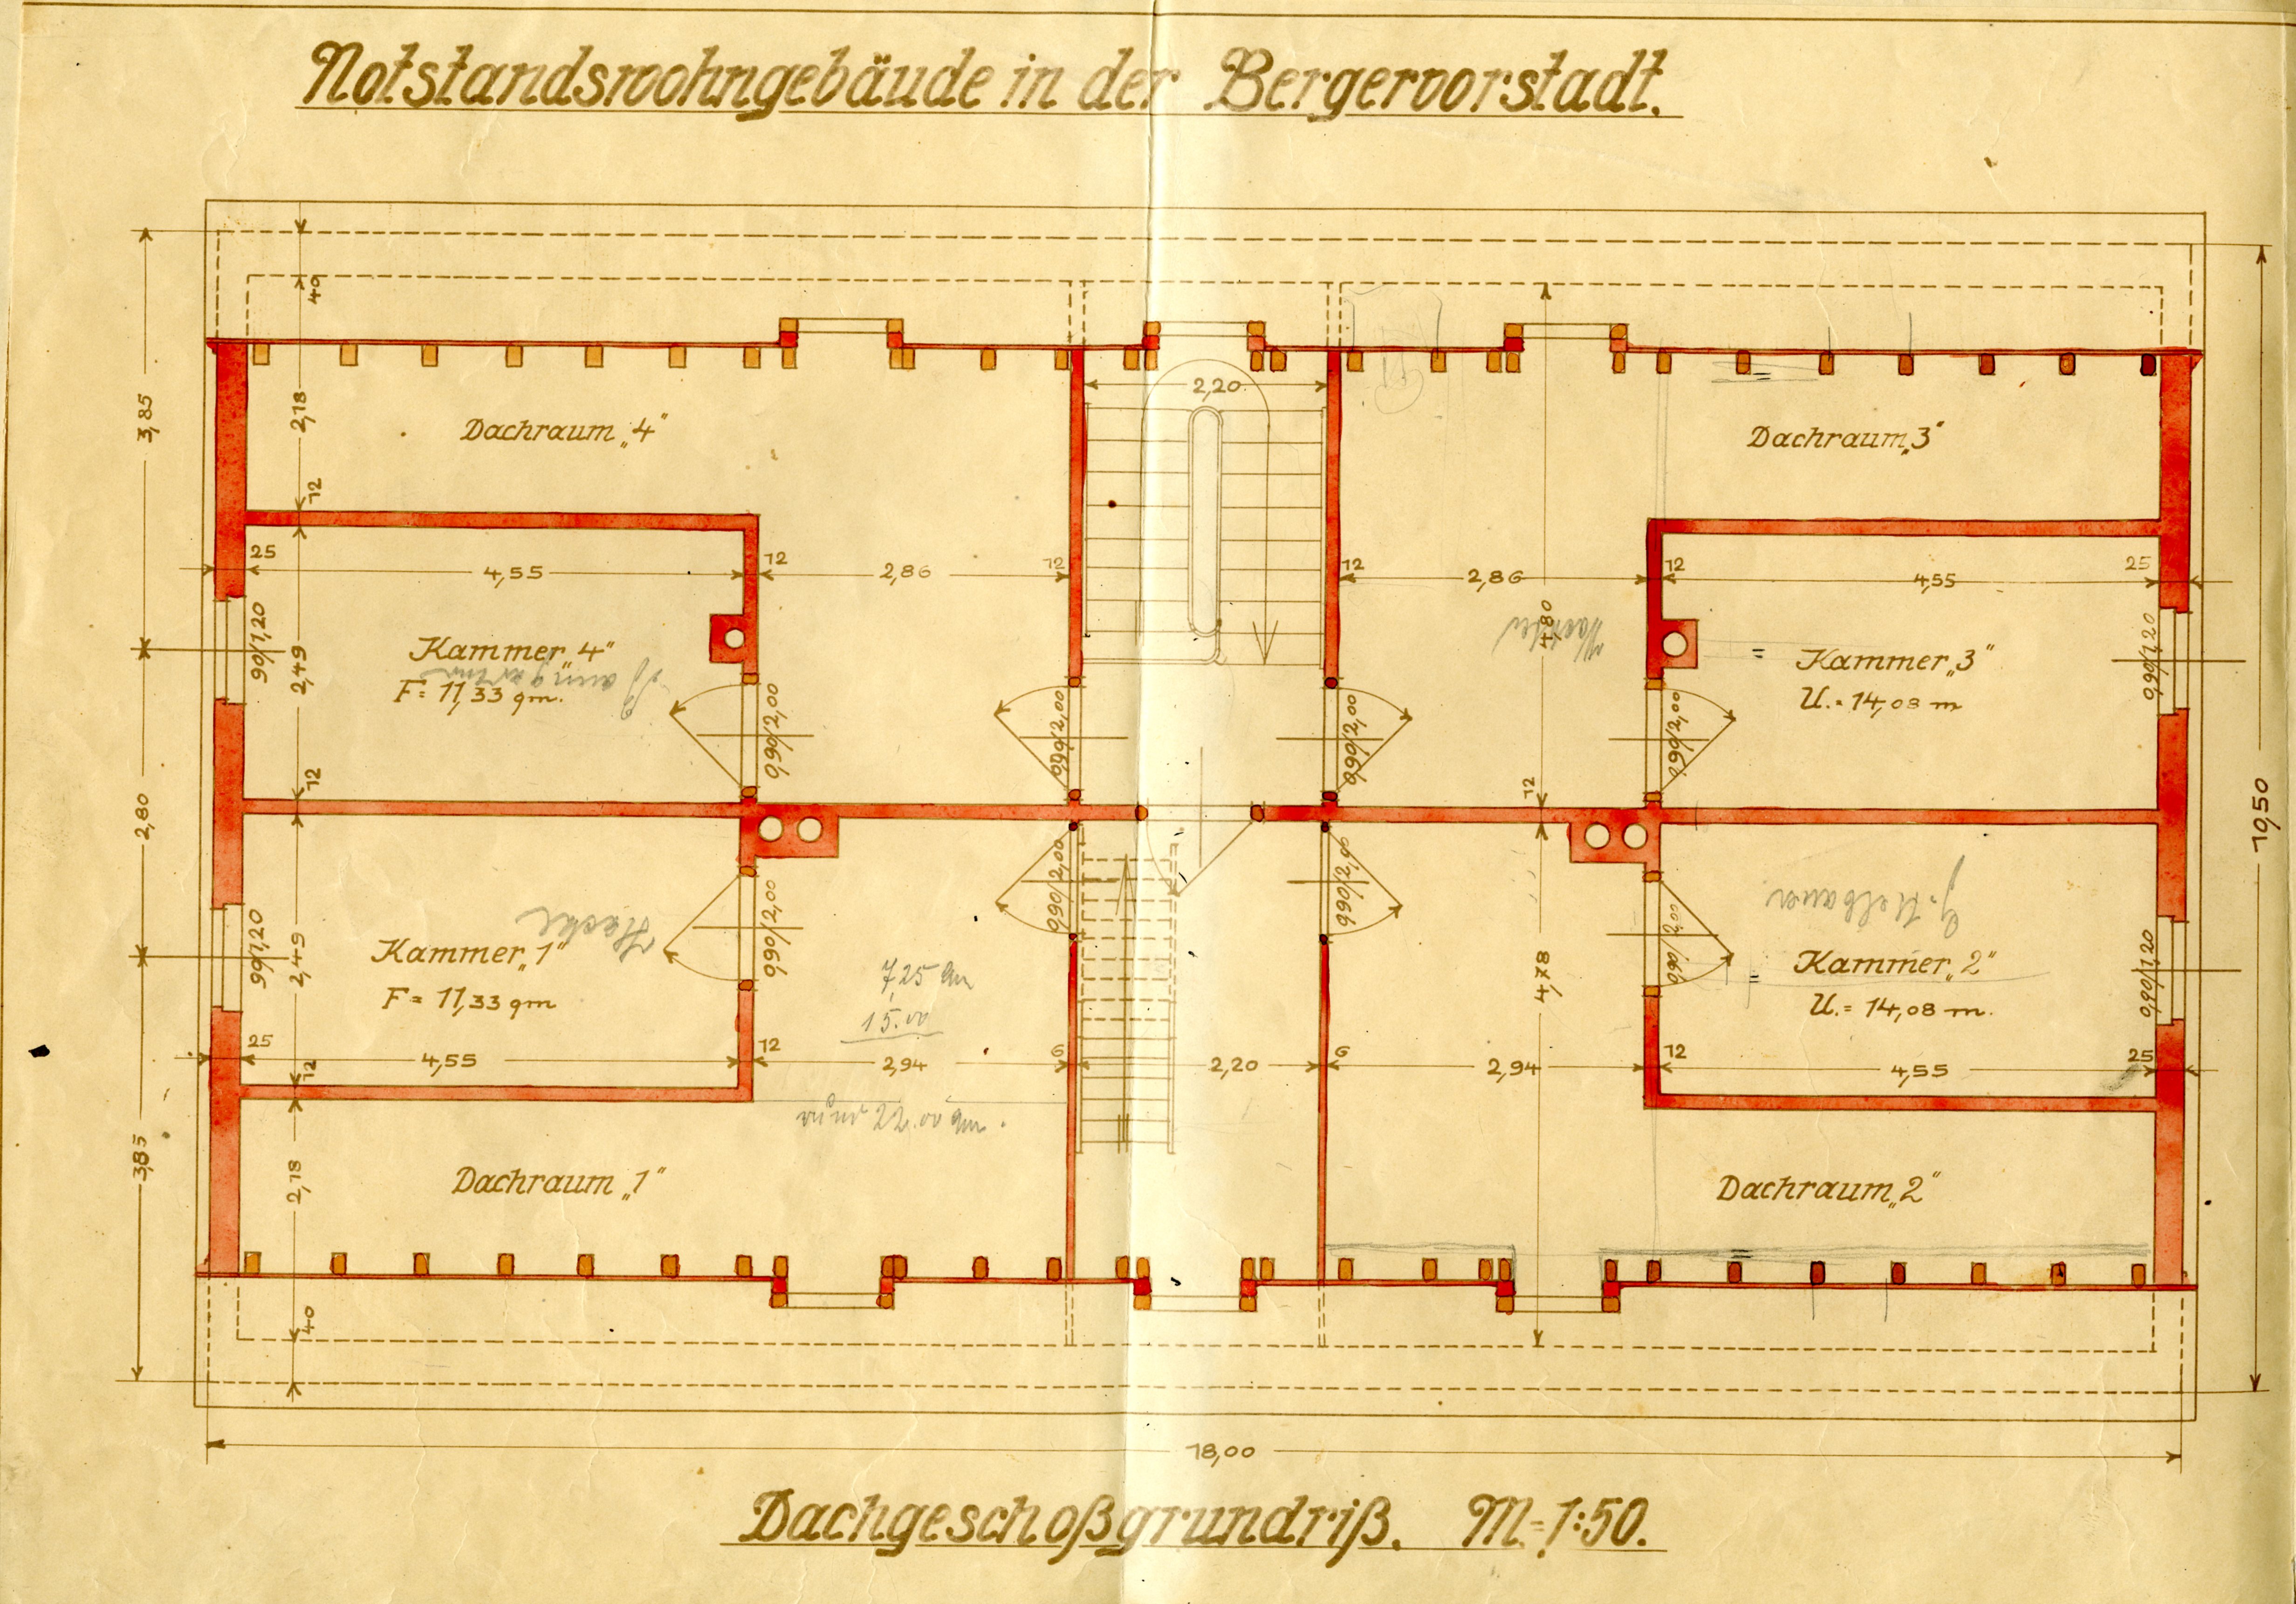 Notstandswohngebäude in der Bergervorstadt.
40
2,20
3,85
2,18
Dachraum „4“
Dachraum „3“
12
25
4,55
12
2,86
12
12
2,86
12
4,55
25
90/1,20
2,49
Kammer „4“
F = 11,33 qm.
0,90/2,00
0,90/2,00
0,90/2,00
4,80
0,90/2,00
Kammer „3“
U. = 14,08 m
0,90/1,20
12
12
2,80
10,50
0,90/2,00
0,90/2,00
90/1,20
2,49
Kammer „1“
F = 11,33 qm
0,90/2,00
7,25 qm
15.00
4,78
0,90/2,00
Kammer „2“
U. = 14,08 m.
0,90/1,20
25
4,55
12
2,94
6
2,20
6
2,94
12
4,55
25
12
22.00 qm.
3,85
2,18
Dachraum „1“
Dachraum „2“
40
18,00
Dachgeschoßgrundriß. M. = 1:50.